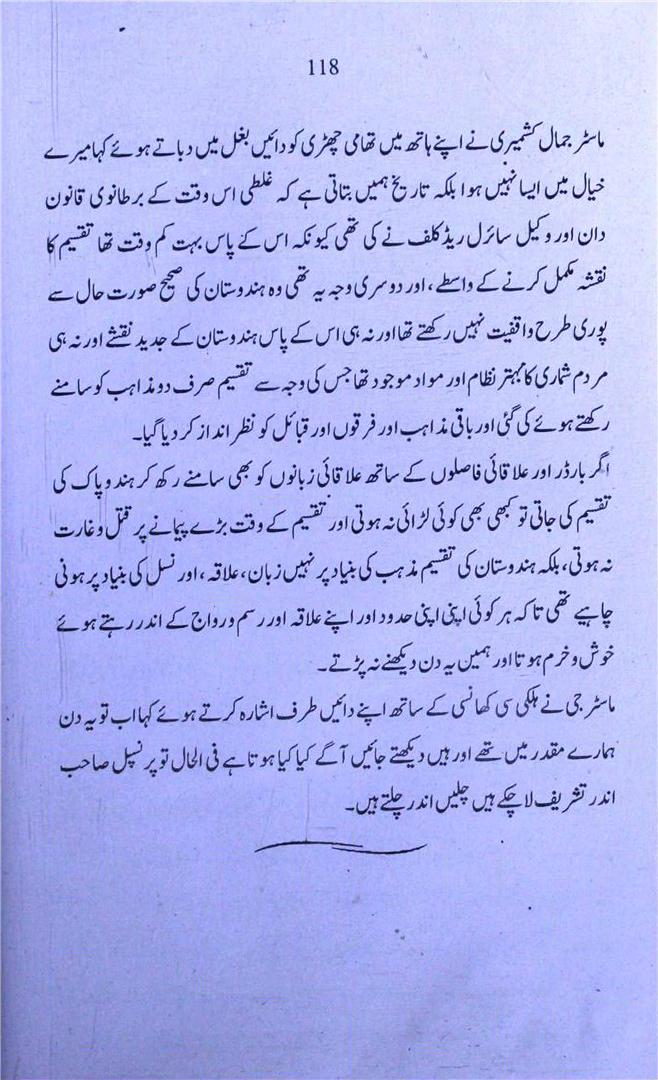 118
ماسٹر جمال کشمیری نے اپنے ہاتھ میں تھامی چھڑی کو دائیں بغل میں دباتے ہوئے کہا میرے
خیال میں ایسا نہیں ہوا بلکہ تاریخ ہمیں بتاتی ہے کہ غلطی اس وقت کے برطانوی قانون
دان اور وکیل سائرل ریڈ کلف نے کی تھی کیونکہ اس کے پاس بہت کم وقت تھا تقسیم کا
نقشہ مکمل کرنے کے واسطے، اور دوسری وجہ یہ تھی وہ ہندوستان کی صحیح صورت حال سے
پوری طرح واقفیت نہیں رکھتے تھا اور نہ ہی اس کے پاس ہندوستان کے جدید نقشے اور نہ ہی
مردم شماری کا بہتر نظام اور مواد موجود تھا جس کی وجہ سے تقسیم صرف دو مذاہب کو سامنے
رکھتے ہوئے کی گئی اور باقی مذاہب اور فرقوں اور قبائل کو نظر انداز کر دیا گیا۔
اگر بارڈر اور علاقائی فاصلوں کے ساتھ علاقائی زبانوں کو بھی سامنے رکھ کر ہند و پاک کی
تقسیم کی جاتی تو کبھی بھی کوئی لڑائی نہ ہوتی اور تقسیم کے وقت بڑے پیمانے پر قتل و غارت
نہ ہوتی، بلکہ ہندوستان کی تقسیم مذہب کی بنیاد پر نہیں زبان، علاقہ، اور نسل کی بنیاد پر ہونی
چاہیے تھی تاکہ ہر کوئی اپنی اپنی حدود اور اپنے علاقہ اور رسم و رواج کے اندر رہتے ہوئے
خوش و خرم ہوتا اور ہمیں یہ دن دیکھنے نہ پڑتے۔
ماسٹر جی نے ہلکی سی کھانسی کے ساتھ اپنے دائیں طرف اشارہ کرتے ہوئے کہا اب تو یہ دن
ہمارے مقدر میں تھے اور ہیں دیکھتے جائیں آگے کیا کیا ہوتا ہے فی الحال تو پرنسپل صاحب
اندر تشریف لا چکے ہیں چلیں اندر چلتے ہیں۔